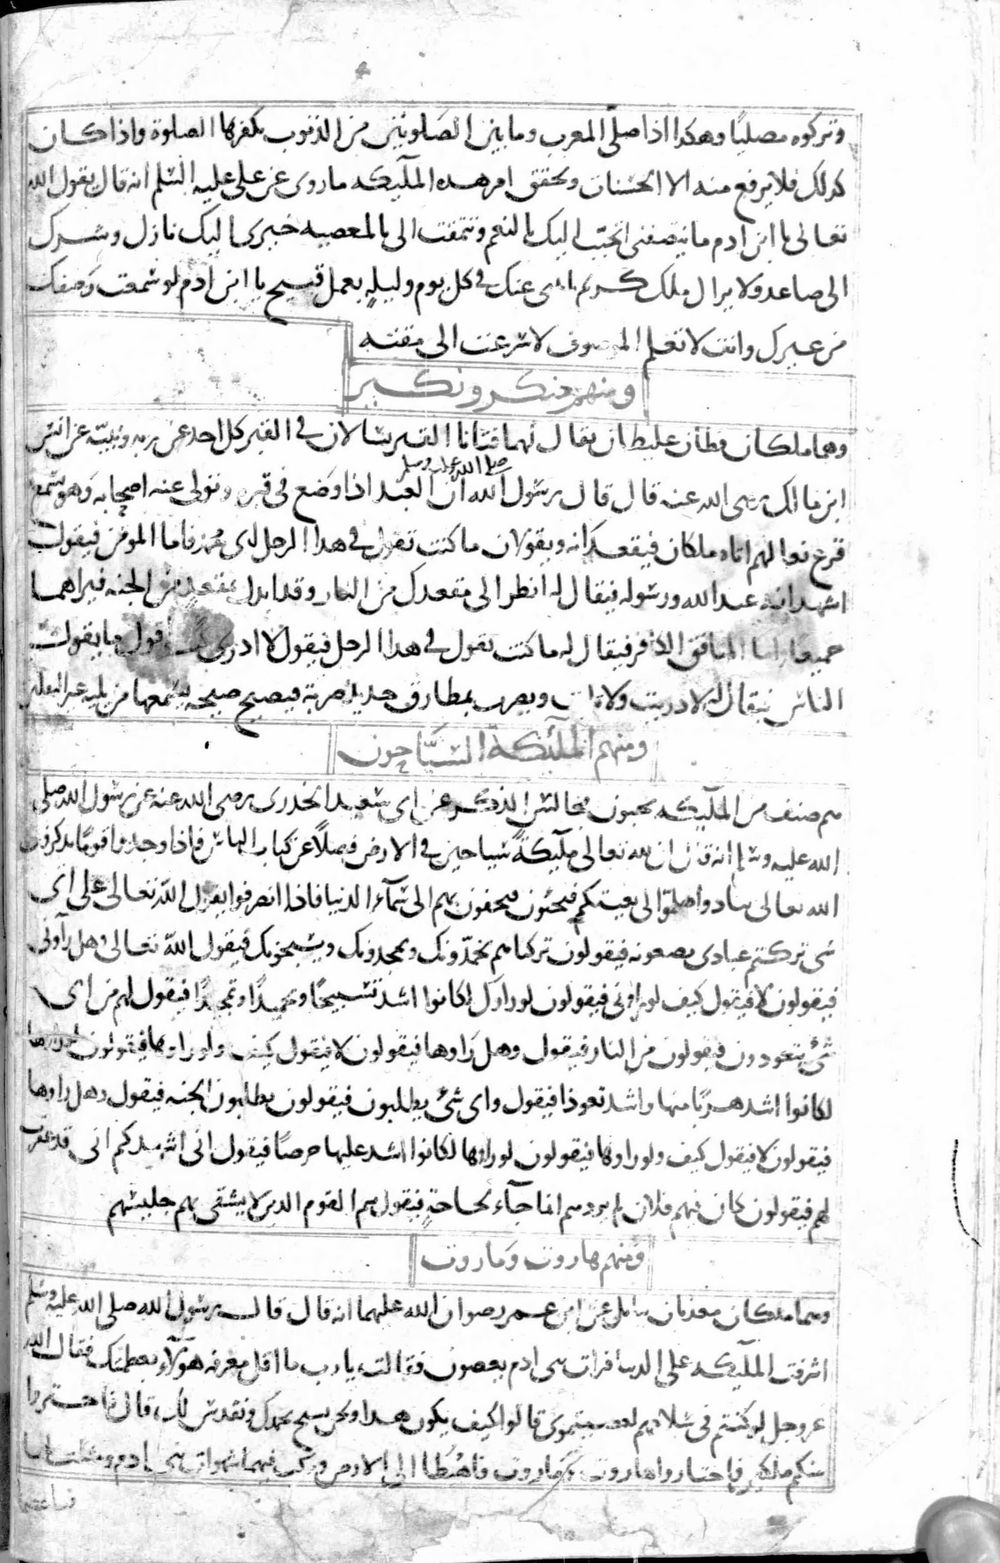 وتركوه مصليًا وهكذا اذا صلى المغرب وما بين الصلوتين من الذنوب يكفرها الصلوة واذا كان
كذلك فلا يرفع منه الا الحسنات ويحقق امر هذه الملٓيكه ما روى عن على عليه السلم انه قال يقول الله
تعالى يا ابن ادم ما تنصفنى اتحبّب اليك بالنعم وتتمقت الى بالمعصيه خيرى اليك نازل وشرك
الى صاعد ولا يزال ملك كريم ياتى عنك فى كل يوم وليلة بعمل قبيح يا ابن ادم لو سمعت وصفك
من غيرك وانت لا تعلم الموصوف لاسرعت الى مقته
ومنهم منكر ونكير
وهما ملكان فظان غليظان يقال لهما فتانا القبر يسالان فى القبر كل احد عن ربه ونبيّه عن انس
ابن مالك رضى الله عنه قال قال رسول الله صلى الله عليه وسلم ان العبد اذا وضع فى قبره وتولى عنه اصحابه وهو يسمع
قرع نعالهم اتاه ملكان فيقعدانه ويقولان ما كنت تقول فى هذا الرجل اى محمد فاما المومن فيقول
اشهد انه عبد الله ورسوله فيقال له انظر الى مقعدك من النار وقد ابدل بمقعد من الجنه فيراهما
جميعا واما المنافق الكافر فيقال له ما كنت تقول فى هذا الرجل فيقول لا ادرى كنت اقول ما يقول
الناس فيقال له لا دريت ولا تليت ويضرب بمطارق حديد ضربة فيصيح صيحه يسمعها من يليه غير الثقلين
ومنهم الملٓئكة السيّاحون
هم صنف من الملٓيكه يحبون مجالس الذكر عن ابى سعيد الخدرى رضى الله عنه عن رسول الله صلى
الله عليه وسلم انه قال ان لله تعالى ملٓيكةً سياحين فى الارض فضلًا عن كتاب الناس فاذا وجدوا قومًا يذكرون
الله تعالى تنادوا هلموا الى بغيتكم فيجئون فيحفون بهم الى سمآء الدنيا فاذا انصرفوا يقول الله تعالى على اى
شى تركتم عبادى يصنعونه فيقولون تركناهم يحمدونك ويمجدونك ويسبحونك فيقول الله تعالى وهل رآونى
فيقولون لا فيقول كيف لو راونى فيقولون لو راوك لكانوا اشد تسبيحًا وتحميدًا وتمجيدًا فيقول لهم من اى
شئ يتعوذون فيقولون من النار فيقول وهل راوها فيقولون لا فيقول كيف ولو راوها فيقولون لو راوها
لكانوا اشد هربًا منها واشد تعوذا فيقول واى شئ يطلبون فيقولون يطلبون الجنه فيقول وهل راوها
فيقولون لا فيقول كيف ولو راوها فيقولون لو راوها لكانوا اشد عليها حرصًا فيقول انى اشهدكم انى قد غفرت
لهم فيقولون كان فيهم فلان لم يردهم انما جآء لحاجةٍ فيقول هم القوم الذين لا يشقى بهم جليسهم
ومنهم هاروت وماروت
وهما ملكان معذبان ببابل عن ابن عمر رضوان الله عليهما انه قال قال رسول الله صلى الله عليه وسلم
اشرفت الملٓيكه على الدنيا فرات بنى ادم يعصون فقالت يا رب ما اقل معرفه هؤلآء بعظمتك فقال الله
عز وجل لو كنتم فى مسلاخهم لعصيتمونى قالوا كيف يكون هذا ونحن نسبح بحمدك ونقدس لك قال فاختاروا
منكم ملكين فاختاروا هاروت وماروت فاهبطا الى الارض وركب فيهما شهوات بنى ادم